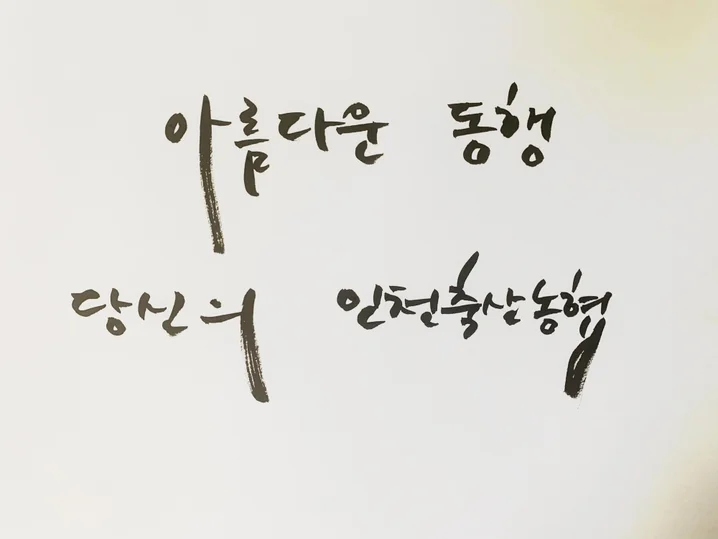 아름다운 동행
당신의 인천축산농협